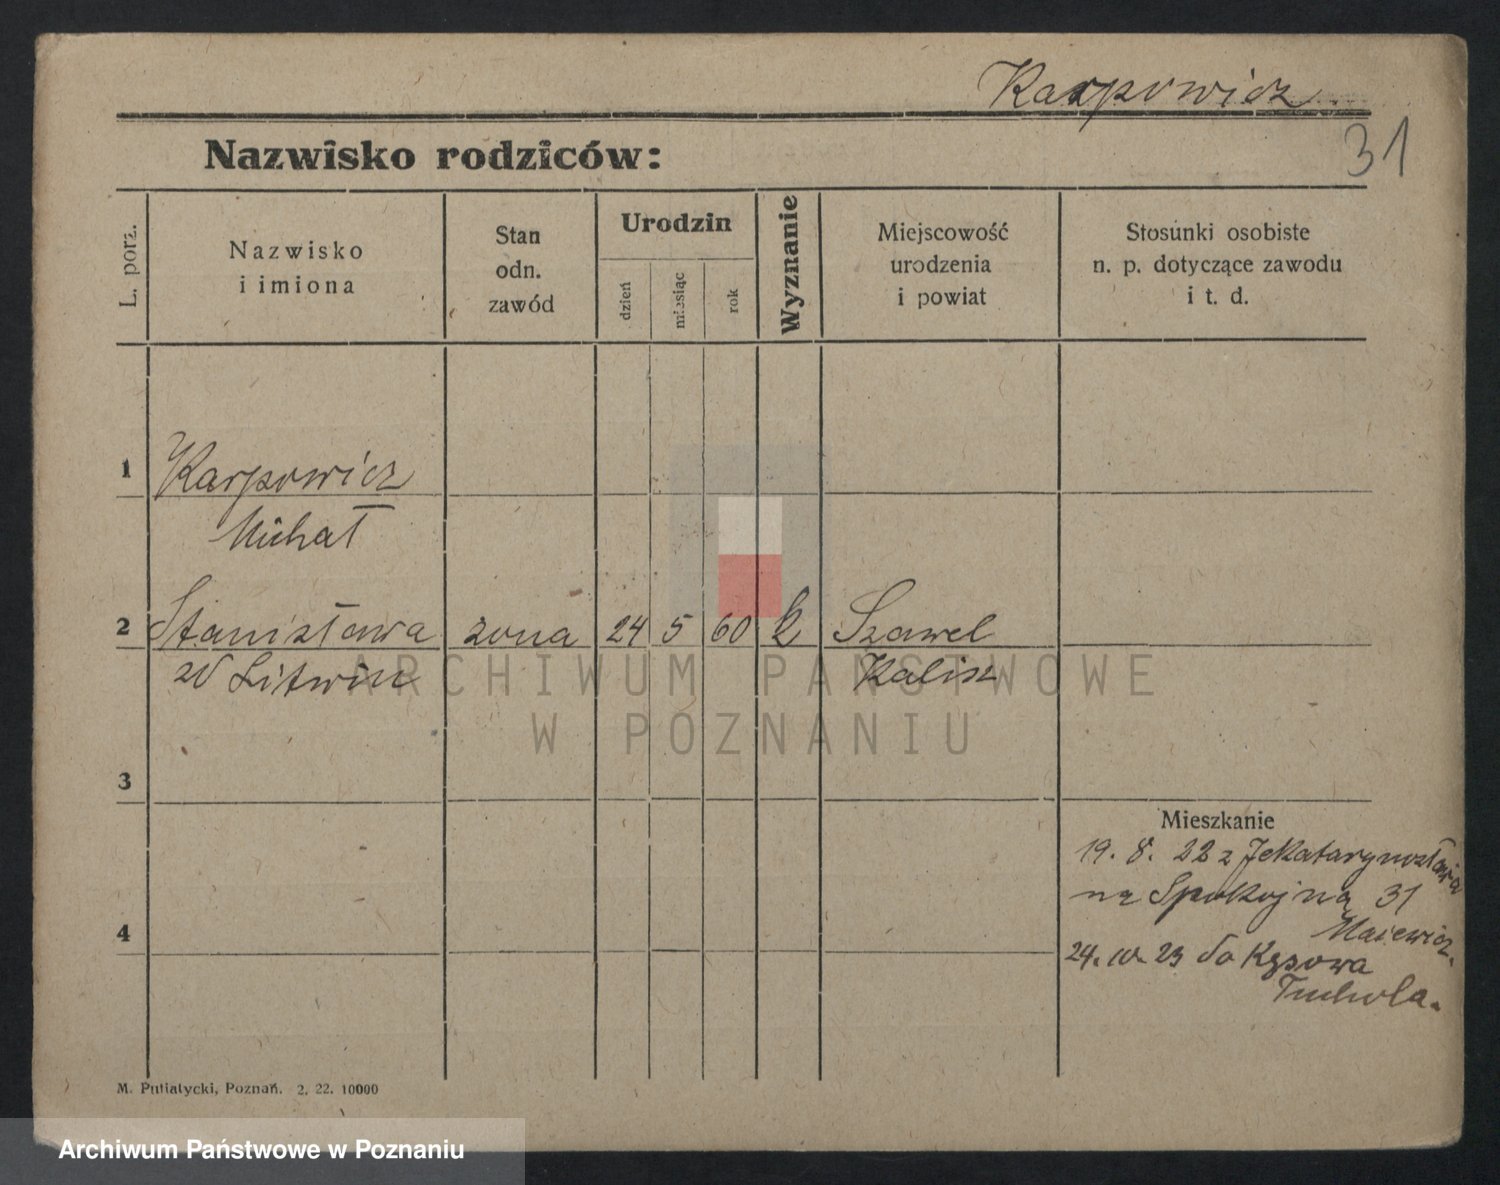 Karpowicz
31
Nazwisko rodziców:
L. porz.
Nazwisko
i imiona
Stan
odn.
zawód
Urodzin
dzień
miesiąc
rok
Wyznanie
Miejscowość
urodzenia
i powiat
Stosunki osobiste
n. p. dotyczące zawodu
i t. d.
1 Karpowicz
Michał
2 Stanisława zona 24 5 60 k Szawel
zd Litwin Kalisz
ARCHIWUM PAŃSTWOWE
W POZNANIU
3
Mieszkanie
19. 8. 22 z Jekatarynosławia
na Spokojną 31
4
Maiewicz.
24. 10. 23 do Kęsowa
Tuchola.
M. Putiatycki, Poznań. 2. 22. 10000
Archiwum Państwowe w Poznaniu